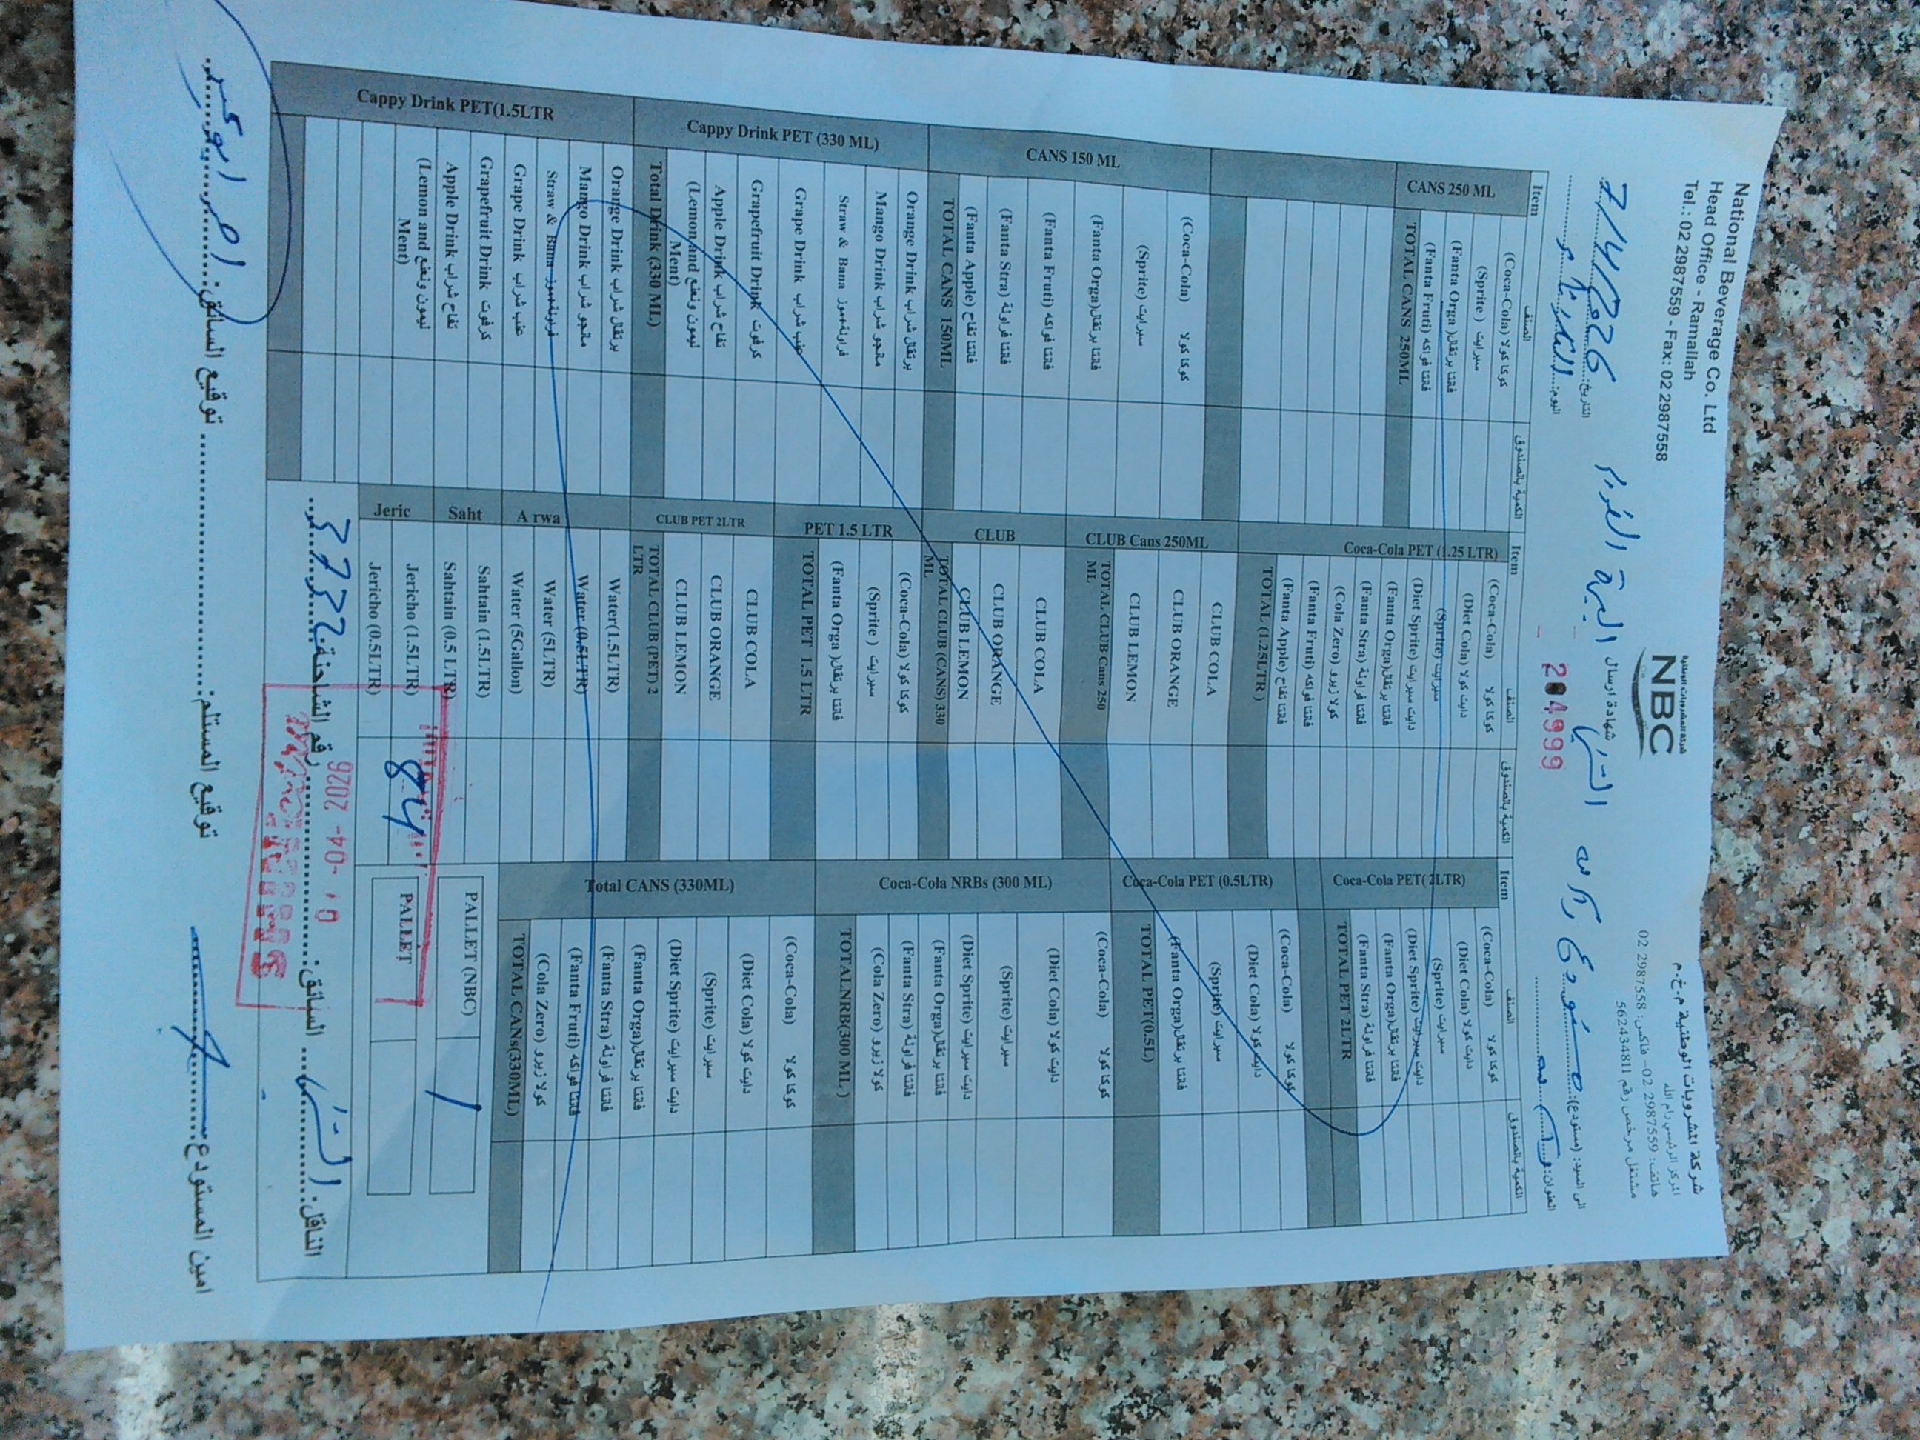 National Beverage Co. Ltd
Head Office - Ramallah
Tel.: 02 2987559 - Fax: 02 2987558
NBC
شركة المشروبات الوطنية
شركة المشروبات الوطنية م.خ.م
المركز الرئيسي رام الله
هاتف: 2987559 02- فاكس: 2987558 02
مشتغل مرخص رقم 562434811
التاريخ: 7/4/2026
اليوم:
شهادة ارسال
204999
الى السيد: (مستودع):
العنوان:
Item الصنف الكمية بالصندوق
CANS 250 ML
(Coca-Cola) كوكا كولا
(Sprite) سبرايت
(Fanta Orga) فانتا برتقال
(Fanta Fruti) فانتا فواكه
TOTAL CANS 250ML
CANS 150 ML
(Coca-Cola) كوكا كولا
(Sprite) سبرايت
(Fanta Orga) فانتا برتقال
(Fanta Fruti) فانتا فواكه
(Fanta Stra) فانتا فراولة
(Fanta Apple) فانتا تفاح
TOTAL CANS 150ML
Cappy Drink PET (330 ML)
Orange Drink برتقال شراب
Mango Drink مانجو شراب
Straw & Bana فراولة+موز
Grape Drink عنب شراب
Grapefruit Drink كرفوت
Apple Drink تفاح شراب
(Lemon and ليمون ونعنع
Ment)
Total Drink (330 ML)
Cappy Drink PET(1.5LTR
Orange Drink برتقال شراب
Mango Drink مانجو شراب
Straw & Bana فراولة+موز
Grape Drink عنب شراب
Grapefruit Drink كرفوت
Apple Drink تفاح شراب
(Lemon and ليمون ونعنع
Ment)
Item الصنف الكمية بالصندوق
Coca-Cola PET (1.25 LTR)
(Coca-Cola) كوكا كولا
(Diet Cola) دايت كولا
(Sprite) سبرايت
(Diet Sprite) دايت سبرايت
(Fanta Orga) فانتا برتقال
(Fanta Stra) فانتا فراولة
(Cola Zero) كولا زيرو
(Fanta Fruti) فانتا فواكه
(Fanta Apple) فانتا تفاح
TOTAL (1.25LTR)
CLUB Cans 250ML
CLUB COLA
CLUB ORANGE
CLUB LEMON
TOTAL CLUB Cans 250
ML
CLUB
CLUB COLA
CLUB ORANGE
CLUB LEMON
TOTAL CLUB (CANS) 330
ML
PET 1.5 LTR
(Coca-Cola) كوكا كولا
(Sprite) سبرايت
(Fanta Orga) فانتا برتقال
TOTAL PET 1.5 LTR
CLUB PET 2LTR
CLUB COLA
CLUB ORANGE
CLUB LEMON
TOTAL CLUB (PET) 2
LTR
Arwa
Water(1.5LTR)
Water (0.5LTR)
Water (5LTR)
Water (5Gallon)
Saht
Sahtain (1.5LTR)
Sahtain (0.5 LTR)
Jeric
Jericho (1.5LTR) 84
Jericho (0.5LTR)
Item الصنف الكمية بالصندوق
Coca-Cola PET( 2LTR)
(Coca-Cola) كوكا كولا
(Diet Cola) دايت كولا
(Sprite) سبرايت
(Diet Sprite) دايت سبرايت
(Fanta Orga) فانتا برتقال
(Fanta Stra) فانتا فراولة
TOTAL PET 2LTR
Coca-Cola PET (0.5LTR)
(Coca-Cola) كوكا كولا
(Diet Cola) دايت كولا
(Sprite) سبرايت
(Fanta Orga) فانتا برتقال
TOTAL PET(0.5L)
Coca-Cola NRBs (300 ML)
(Coca-Cola) كوكا كولا
(Diet Cola) دايت كولا
(Sprite) سبرايت
(Diet Sprite) دايت سبرايت
(Fanta Orga) فانتا برتقال
(Fanta Stra) فانتا فراولة
(Cola Zero) كولا زيرو
TOTAL NRB(300 ML)
Total CANS (330ML)
(Coca-Cola) كوكا كولا
(Diet Cola) دايت كولا
(Sprite) سبرايت
(Diet Sprite) دايت سبرايت
(Fanta Orga) فانتا برتقال
(Fanta Stra) فانتا فراولة
(Fanta Fruti) فانتا فواكه
(Cola Zero) كولا زيرو
TOTAL CANS(330ML)
PALLET (NBC) 1
PALLET
2026 -04- 0
الناقل: السائق: رقم الشاحنة:
امين المستودع: توقيع المستلم: توقيع السائق: